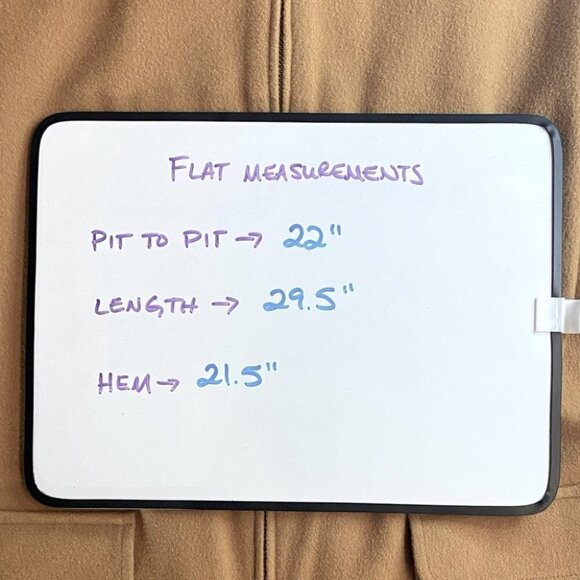 FLAT MEASUREMENTS
PIT TO PIT → 22"
LENGTH → 29.5"
HEM → 21.5"